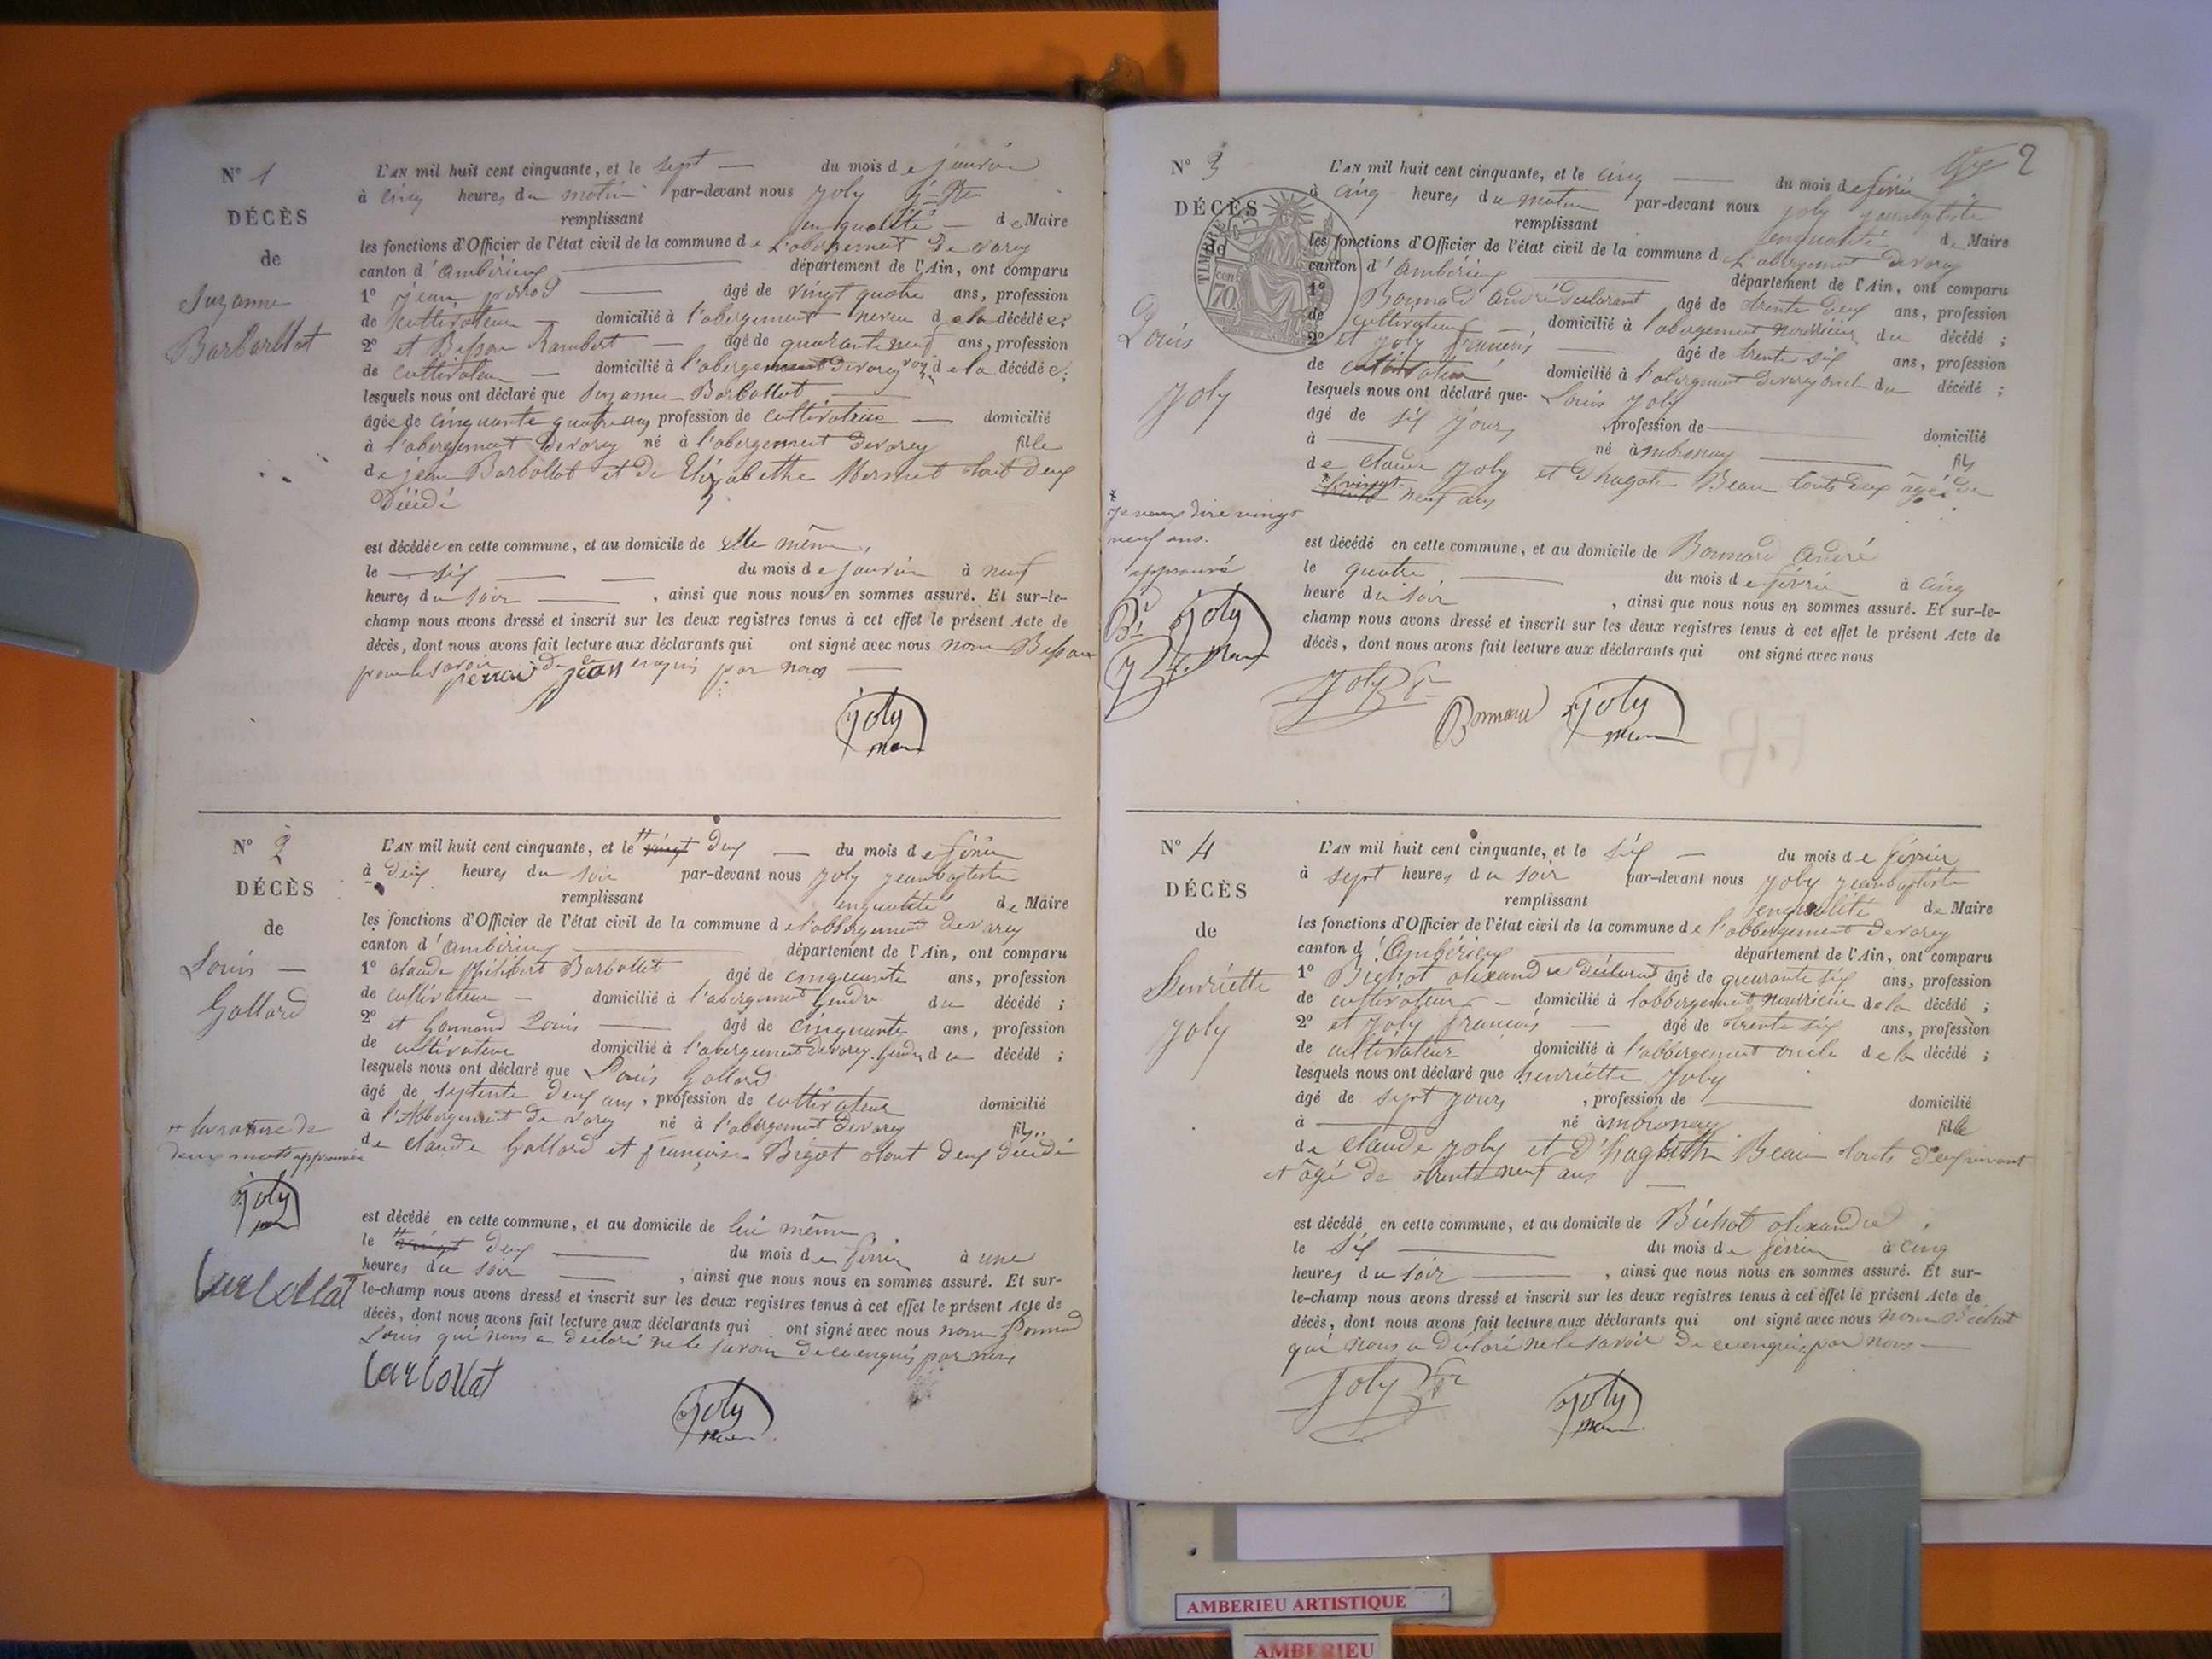 N° 1
DÉCÈS
de
Suzanne
Barbollat
L'AN mil huit cent cinquante, et le sept du mois de janvier
à cinq heures du matin par-devant nous joly j. Bte
remplissant en qualité de Maire
les fonctions d'Officier de l'état civil de la commune de L'abergement de varey
canton d'ambérieux département de l'Ain, ont comparu
1° jean perrod âgé de vingt quatre ans, profession
de cultivateur domicilié à l'abergement neveu de la décédée;
2° et Besson Rambert âgé de quarante neuf ans, profession
de cultivateur domicilié à l'abergement de varey de la décédée;
lesquels nous ont déclaré que Suzanne Barbollat
âgée de cinquante quatre ans profession de cultivatrice domicilié
à l'abergement de varey né à l'abergement de varey fille
de jean Barbollat et de Elizabethe Mermet tout deux
décédé
est décédée en cette commune, et au domicile de elle même,
le six du mois de janvier à neuf
heures du soir, ainsi que nous nous en sommes assuré. Et sur-le-
champ nous avons dressé et inscrit sur les deux registres tenus à cet effet le présent Acte de
décès, dont nous avons fait lecture aux déclarants qui ont signé avec nous non Besson
pour le savoir de ce enquis par nous
perrod jean
joly
maire
N° 2
DÉCÈS
de
Louis
Gallard
L'AN mil huit cent cinquante, et le vingt deux du mois de février
à deux heures du soir par-devant nous joly jeanbaptiste
remplissant en qualité de Maire
les fonctions d'Officier de l'état civil de la commune de l'abbergement de varey
canton d'ambérieux département de l'Ain, ont comparu
1° claude philibert Barbollat âgé de cinquante ans, profession
de cultivateur domicilié à l'abergement gendre du décédé;
2° et Gonnand Louis âgé de cinquante ans, profession
de cultivateur domicilié à l'abergement de varey gendre du décédé;
lesquels nous ont déclaré que Louis Gallard
âgé de septente deux ans, profession de cultivateur domicilié
à l'Abbergement de varey né à l'abergement de varey fils
de claude Gallard et françoise Bigot tout deux décédé
la rature de
deux mots approuvée
joly
maire
barbollat
est décédé en cette commune, et au domicile de lui même
le vingt deux du mois de février à une
heures du soir, ainsi que nous nous en sommes assuré. Et sur-
le-champ nous avons dressé et inscrit sur les deux registres tenus à cet effet le présent Acte de
décès, dont nous avons fait lecture aux déclarants qui ont signé avec nous non Gonnand
Louis qui nous a déclaré ne le savoir de ce enquis par nous
barbollat
joly
maire
2
N° 3
DÉCÈS
de
TIMBRE
70
Louis
joly
L'AN mil huit cent cinquante, et le cinq du mois de février
à cinq heures du matin par-devant nous joly jeanbaptiste
remplissant en qualité de Maire
les fonctions d'Officier de l'état civil de la commune d L'abergement de varey
canton d'Ambérieux département de l'Ain, ont comparu
1° Bonnard andré déclarant âgé de trente deux ans, profession
de cultivateur, domicilié à l'abergement nourricier du décédé;
2° et joly francois âgé de trente six ans, profession
de cultivateur domicilié à l'abergement de varey oncle du décédé;
lesquels nous ont déclaré que Louis joly
âgé de six jours, profession de domicilié
à né à ambronay fils
de claude joly et d'hagate Beau touts deux âgés de
vingt neuf ans
je veux dire vingt
neuf ans.
approuvé
joly
maire
est décédé en cette commune, et au domicile de Bonnard André
le quatre du mois de février à cinq
heure du soir, ainsi que nous nous en sommes assuré. Et sur-le-
champ nous avons dressé et inscrit sur les deux registres tenus à cet effet le présent Acte de
décès, dont nous avons fait lecture aux déclarants qui ont signé avec nous
Joly
Bonnard
joly
maire
N° 4
DÉCÈS
de
henriette
joly
L'AN mil huit cent cinquante, et le six du mois de février
à sept heures du soir par-devant nous joly jeanbaptiste
remplissant en qualité de Maire
les fonctions d'Officier de l'état civil de la commune de l'abbergement de varey
canton d'Ambérieux département de l'Ain, ont comparu
1° Bichot alixandre déclarant âgé de quarante six ans, profession
de cultivateur domicilié à l'abbergement nourricier de la décédé;
2° et joly francois âgé de trente six ans, profession
de cultivateur domicilié à l'abbergement oncle de la décédé;
lesquels nous ont déclaré que henriette joly
âgé de sept jours, profession de domicilié
à né à ambronay fille
de claude joly et d'hagathe Beau touts deux vivant
et âgé de trente neuf ans
est décédé en cette commune, et au domicile de Bichot alixandre
le six du mois de février à cinq
heures du soir, ainsi que nous nous en sommes assuré. Et sur-
le-champ nous avons dressé et inscrit sur les deux registres tenus à cet effet le présent Acte de
décès, dont nous avons fait lecture aux déclarants qui ont signé avec nous non Bichot
qui nous a déclaré ne le savoir de ce enquis par nous
Joly
joly
maire
AMBERIEU ARTISTIQUE
AMBERIEU